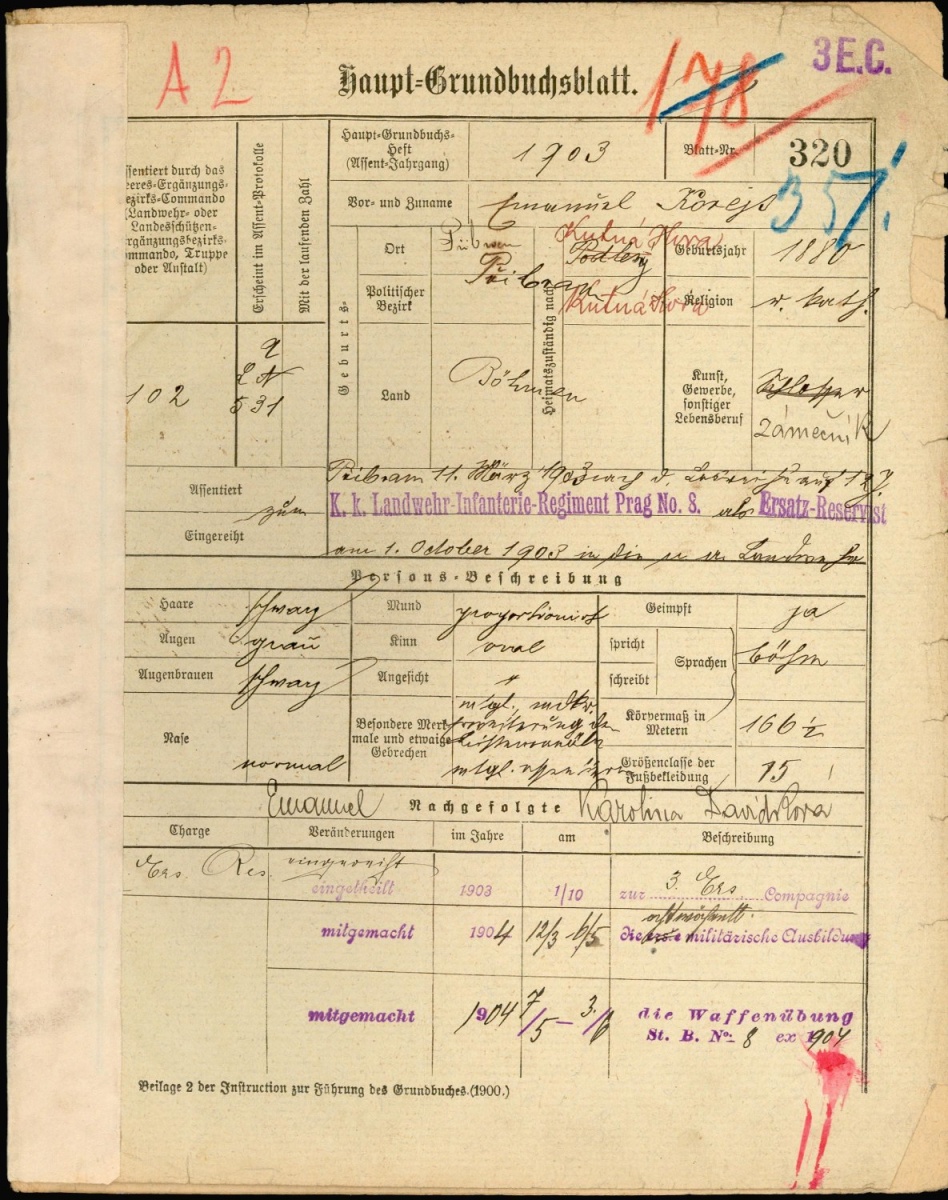 A 2
Haupt-Grundbuchsblatt.
178
3 E.C.
ssentiert durch das
eeres-Ergänzungs-
ezirks-Commando
(Landwehr- oder
Landesschützen-
rgänzungsbezirks-
ommando, Truppe
oder Anstalt)
Erscheint im Assent-Protokolle
Mit der laufenden Zahl
Haupt-Grundbuchs-
Heft
(Assent-Jahrgang)
1903
Blatt-Nr.
320
357
Vor- und Zuname
Emanuel Korejs
Geburts-
Ort
Příbram
Heimatszuständig nach
Kutná Hora
Podlesy
Geburtsjahr
1880
Politischer
Bezirk
Přibram
Kutná Hora
Religion
r. kath.
102
531
Land
Böhmen
Kunst,
Gewerbe,
sonstiger
Lebensberuf
Schlosser
zámečník
Assentiert
Pribram 11. März 1903 nach d. auf 12 J.
zum
K. k. Landwehr-Infanterie-Regiment Prag No. 8. als Ersatz-Reservist
Eingereiht
am 1. October 1903 in die Landwehr
Persons-Beschreibung
Haare
schwarz
Mund
proportionirt
Geimpft
ja
Augen
grau
Kinn
oval
spricht
schreibt
Sprachen
böhm
Augenbrauen
schwarz
Angesicht
"
Nase
normal
Besondere Merk-
male und etwaige
Gebrechen
mtgl.
Erweiterung der
Leistenkanäle
mtgl.
Körpermaß in
Metern
166 ½
Größenclasse der
Fußbekleidung
15
Emanuel
Nachgefolgte
Karolina Davidkova
Charge
Veränderungen
im Jahre
am
Beschreibung
Ers. Res.
eingereiht
eingetheilt
1903
1/10
zur 3. Ers Compagnie
mitgemacht
1904
12/3 6/5
achtwöchentl.
die erste militärische Ausbildung
mitgemacht
1904
7/5 – 3/6
die Waffenübung
St. B. No: 8 ex 1904
Beilage 2 der Instruction zur Führung des Grundbuches (1900.)